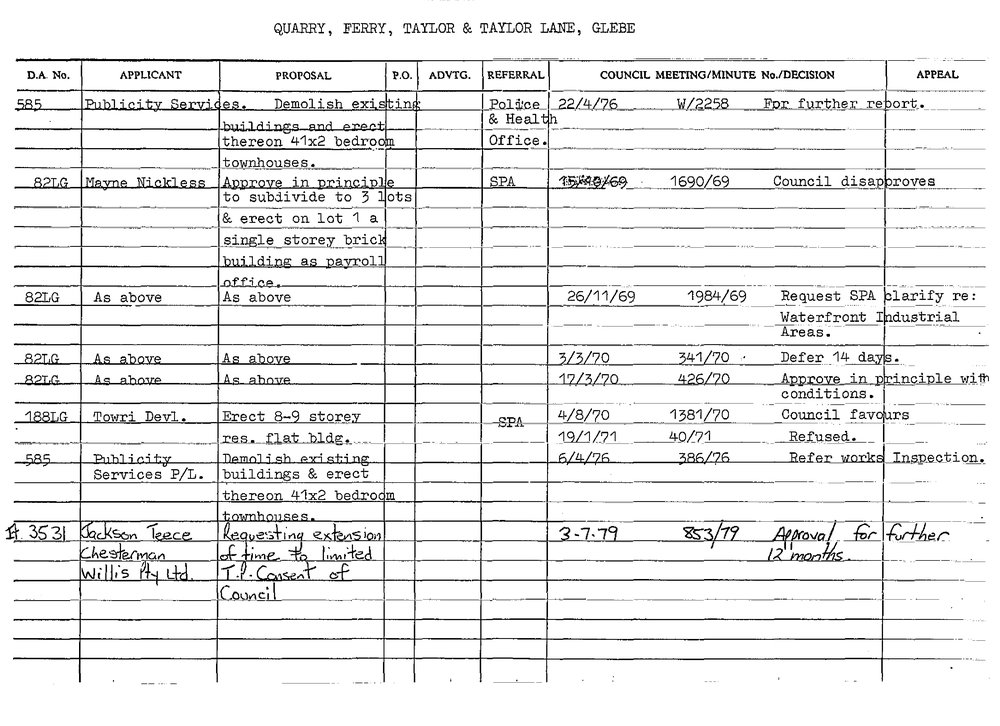 QUARRY, FERRY, TAYLOR & TAYLOR LANE, GLEBE
D.A. No. APPLICANT PROPOSAL P.O. ADVTG. REFERRAL COUNCIL MEETING/MINUTE No./DECISION APPEAL
585 Publicity Services. Demolish existing Police 22/4/76 W/2258 For further report.
& Health
buildings and erect
thereon 41x2 bedroom Office.
townhouses.
82LG Mayne Nickless Approve in principle SPA 1690/69 Council disapproves
to subdivide to 3 lots
& erect on lot 1 a
single storey brick
building as payroll
office.
82LG As above As above 26/11/69 1984/69 Request SPA clarify re:
Waterfront Industrial
Areas.
82LG As above As above 3/3/70 341/70 Defer 14 days.
82LG As above As above 17/3/70 426/70 Approve in principle with
conditions.
188LG Towri Devl. Erect 8-9 storey SPA 4/8/70 1381/70 Council favours
res. flat bldg. 19/1/71 40/71 Refused.
585 Publicity Demolish existing 6/4/76 386/76 Refer works Inspection.
Services P/L. buildings & erect
thereon 41x2 bedroom
townhouses.
3531 Jackson Teece Requesting extension 3-7-79 853/79 Approval for further
Chesterman of time to limited 12 months.
Willis Pty Ltd. T.P. Consent of
Council